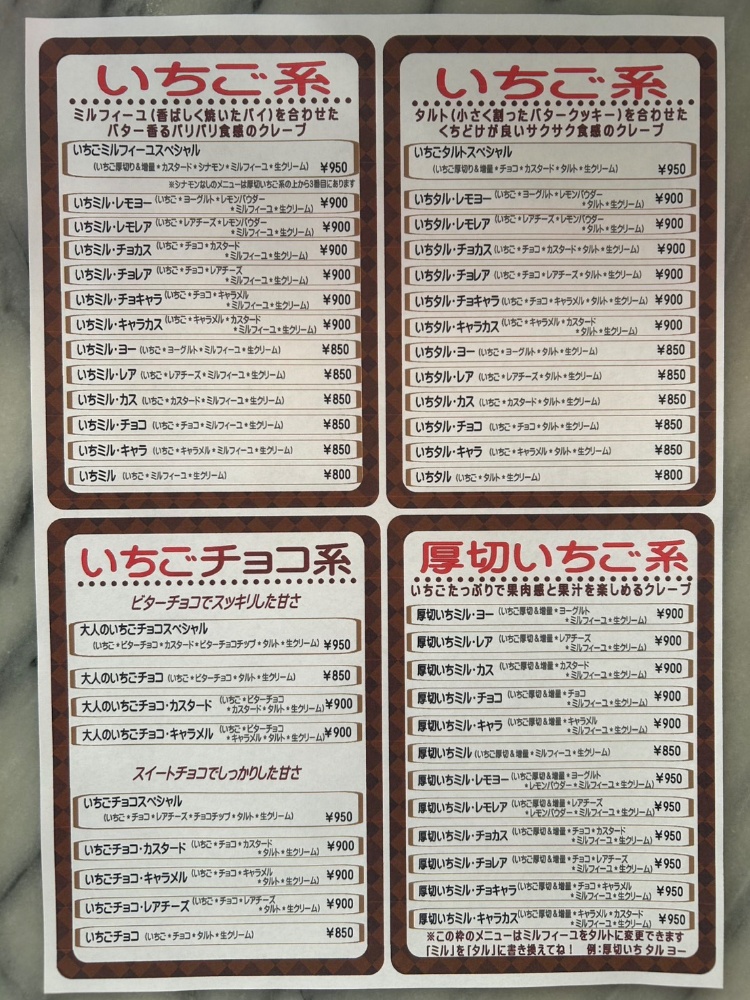 いちご系
ミルフィーユ(香ばしく焼いたパイ)を合わせた
バター香るパリパリ食感のクレープ
いちごミルフィーユスペシャル
(いちご厚切り&増量*カスタード*シナモン*ミルフィーユ*生クリーム) ¥950
※シナモンなしのメニューは厚切いちご系の上から3番目にあります
いちミル・レモヨー (いちご*ヨーグルト*レモンパウダー
*ミルフィーユ*生クリーム) ¥900
いちミル・レモレア (いちご*レアチーズ*レモンパウダー
*ミルフィーユ*生クリーム) ¥900
いちミル・チョカス (いちご*チョコ*カスタード
*ミルフィーユ*生クリーム) ¥900
いちミル・チョレア (いちご*チョコ*レアチーズ
*ミルフィーユ*生クリーム) ¥900
いちミル・チョキャラ (いちご*チョコ*キャラメル
*ミルフィーユ*生クリーム) ¥900
いちミル・キャラカス (いちご*キャラメル*カスタード
*ミルフィーユ*生クリーム) ¥900
いちミル・ヨー (いちご*ヨーグルト*ミルフィーユ*生クリーム) ¥850
いちミル・レア (いちご*レアチーズ*ミルフィーユ*生クリーム) ¥850
いちミル・カス (いちご*カスタード*ミルフィーユ*生クリーム) ¥850
いちミル・チョコ (いちご*チョコ*ミルフィーユ*生クリーム) ¥850
いちミル・キャラ (いちご*キャラメル*ミルフィーユ*生クリーム) ¥850
いちミル (いちご*ミルフィーユ*生クリーム) ¥800
いちご系
タルト(小さく割ったバタークッキー)を合わせた
くちどけが良いサクサク食感のクレープ
いちごタルトスペシャル
(いちご厚切り&増量*チョコ*カスタード*タルト*生クリーム) ¥950
いちタル・レモヨー (いちご*ヨーグルト*レモンパウダー
*タルト*生クリーム) ¥900
いちタル・レモレア (いちご*レアチーズ*レモンパウダー
*タルト*生クリーム) ¥900
いちタル・チョカス (いちご*チョコ*カスタード*タルト*生クリーム) ¥900
いちタル・チョレア (いちご*チョコ*レアチーズ*タルト*生クリーム) ¥900
いちタル・チョキャラ (いちご*チョコ*キャラメル*タルト*生クリーム) ¥900
いちタル・キャラカス (いちご*キャラメル*カスタード
*タルト*生クリーム) ¥900
いちタル・ヨー (いちご*ヨーグルト*タルト*生クリーム) ¥850
いちタル・レア (いちご*レアチーズ*タルト*生クリーム) ¥850
いちタル・カス (いちご*カスタード*タルト*生クリーム) ¥850
いちタル・チョコ (いちご*チョコ*タルト*生クリーム) ¥850
いちタル・キャラ (いちご*キャラメル*タルト*生クリーム) ¥850
いちタル (いちご*タルト*生クリーム) ¥800
いちごチョコ系
ビターチョコでスッキリした甘さ
大人のいちごチョコスペシャル
(いちご*ビターチョコ*カスタード*ビターチョコチップ*タルト*生クリーム) ¥950
大人のいちごチョコ (いちご*ビターチョコ*タルト*生クリーム) ¥850
大人のいちごチョコ・カスタード (いちご*ビターチョコ
*カスタード*タルト*生クリーム) ¥900
大人のいちごチョコ・キャラメル (いちご*ビターチョコ
*キャラメル*タルト*生クリーム) ¥900
スイートチョコでしっかりした甘さ
いちごチョコスペシャル
(いちご*チョコ*レアチーズ*チョコチップ*タルト*生クリーム) ¥950
いちごチョコ・カスタード (いちご*チョコ*カスタード
*タルト*生クリーム) ¥900
いちごチョコ・キャラメル (いちご*チョコ*キャラメル
*タルト*生クリーム) ¥900
いちごチョコ・レアチーズ (いちご*チョコ*レアチーズ
*タルト*生クリーム) ¥900
いちごチョコ (いちご*チョコ*タルト*生クリーム) ¥850
厚切いちご系
いちごたっぷりで果肉感と果汁を楽しめるクレープ
厚切いちミル・ヨー (いちご厚切&増量*ヨーグルト
*ミルフィーユ*生クリーム) ¥900
厚切いちミル・レア (いちご厚切&増量*レアチーズ
*ミルフィーユ*生クリーム) ¥900
厚切いちミル・カス (いちご厚切&増量*カスタード
*ミルフィーユ*生クリーム) ¥900
厚切いちミル・チョコ (いちご厚切&増量*チョコ
*ミルフィーユ*生クリーム) ¥900
厚切いちミル・キャラ (いちご厚切&増量*キャラメル
*ミルフィーユ*生クリーム) ¥900
厚切いちミル (いちご厚切&増量*ミルフィーユ*生クリーム) ¥850
厚切いちミル・レモヨー (いちご厚切&増量*ヨーグルト
*レモンパウダー*ミルフィーユ*生クリーム) ¥950
厚切いちミル・レモレア (いちご厚切&増量*レアチーズ
*レモンパウダー*ミルフィーユ*生クリーム) ¥950
厚切いちミル・チョカス (いちご厚切&増量*チョコ*カスタード
*ミルフィーユ*生クリーム) ¥950
厚切いちミル・チョレア (いちご厚切&増量*チョコ*レアチーズ
*ミルフィーユ*生クリーム) ¥950
厚切いちミル・チョキャラ (いちご厚切&増量*チョコ*キャラメル
*ミルフィーユ*生クリーム) ¥950
厚切いちミル・キャラカス (いちご厚切&増量*キャラメル*カスタード
*ミルフィーユ*生クリーム) ¥950
※この枠のメニューはミルフィーユをタルトに変更できます
「ミル」を「タル」に書き換えてね! 例:厚切いち タル ヨー